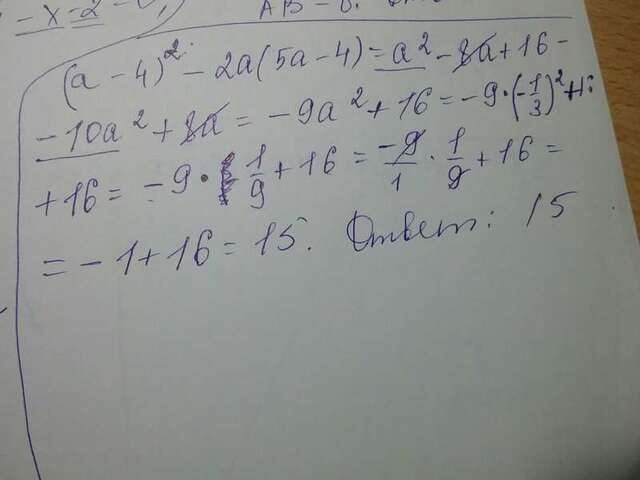 - x - 2 -
(a - 4)² - 2a(5a - 4) = a² - 8a + 16 -
- 10a² + 8a = - 9a² + 16 = - 9 · (-1/3)² +
+ 16 = - 9 · 1/9 + 16 = -9/1 · 1/9 + 16 =
= - 1 + 16 = 15. Ответ: 15